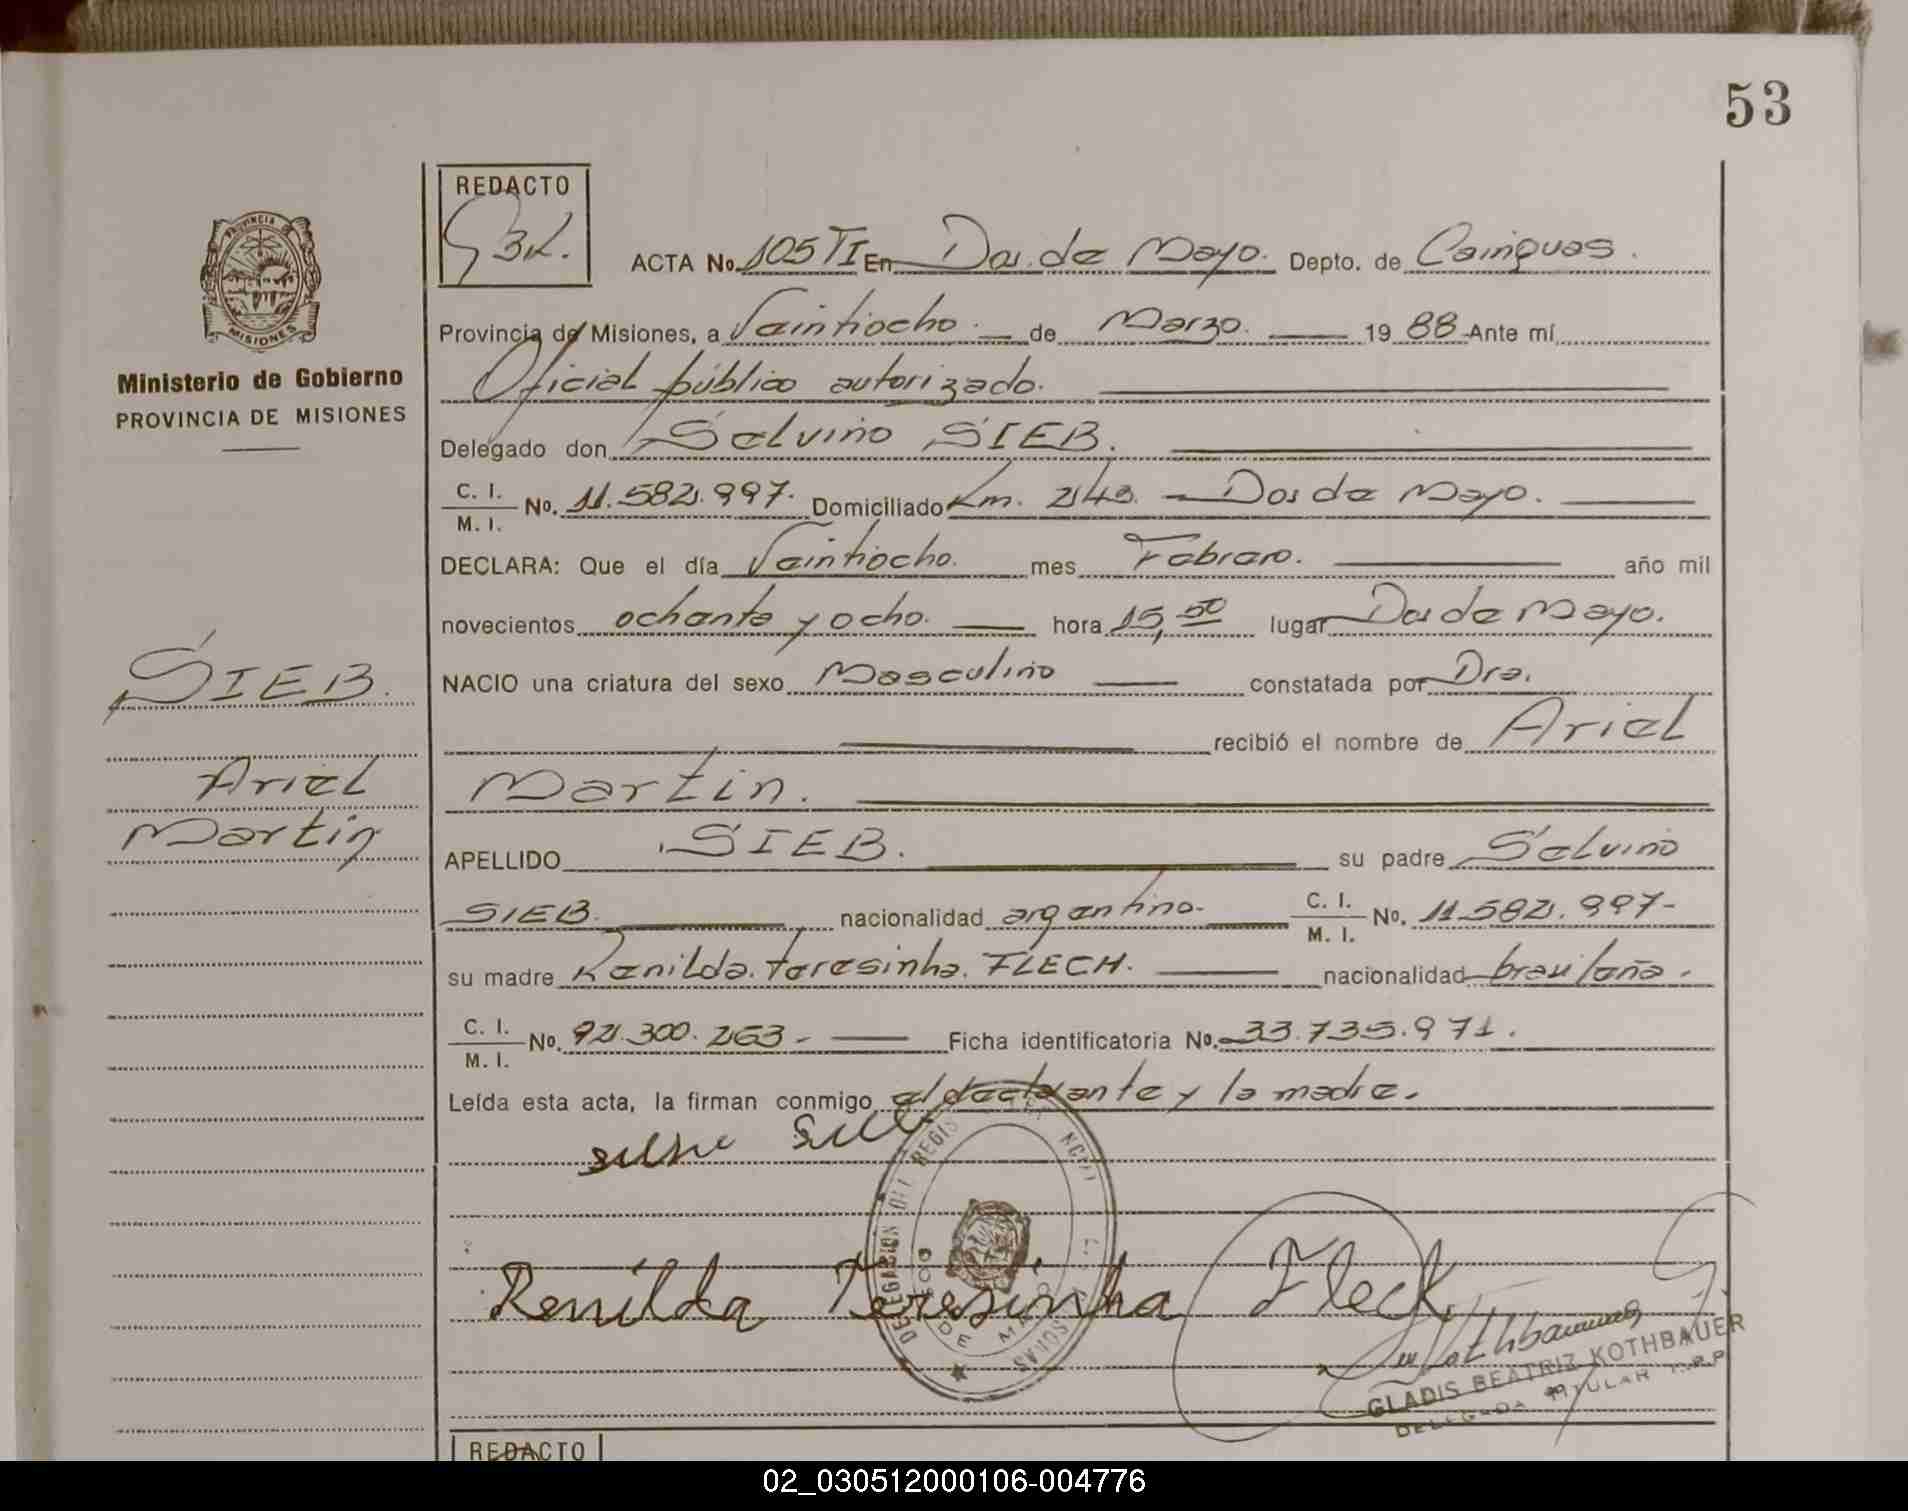 53
REDACTO
ACTA No. 105 TI En Dos de Mayo. Depto. de Cainguas.
PROVINCIA
MISIONES
Provincia de Misiones, a Veintiocho. de Marzo. 19 88 Ante mí
Ministerio de Gobierno
PROVINCIA DE MISIONES
Oficial público autorizado.
Delegado don Selvino SIEB.
C. I.
M. I.
No. 11.582.997. Domiciliado Km. 243. - Dos de Mayo.
DECLARA: Que el día Veintiocho. mes Febrero. año mil
novecientos ochenta y ocho. hora 15,50 lugar Dos de Mayo.
SIEB.
NACIO una criatura del sexo Masculino constatada por Dra.
recibió el nombre de Ariel
Ariel
Martin.
Martin
APELLIDO SIEB. su padre Selvino
SIEB. nacionalidad argentino. C. I.
M. I.
No. 11.582.997-
su madre Renilda Teresinha FLECH. nacionalidad brasileña.
C. I.
M. I.
No. 92.300.263.- Ficha identificatoria No. 33.735.971.
Leída esta acta, la firman conmigo el declarante y la madre.
DELEGACION DEL REGIS
DOS DE MAYO
Renilda Teresinha Fleck.
Kothbauer
GLADIS BEATRIZ KOTHBAUER
DELEGADA TITULAR R.P.P.
REDACTO
02_030512000106-004776